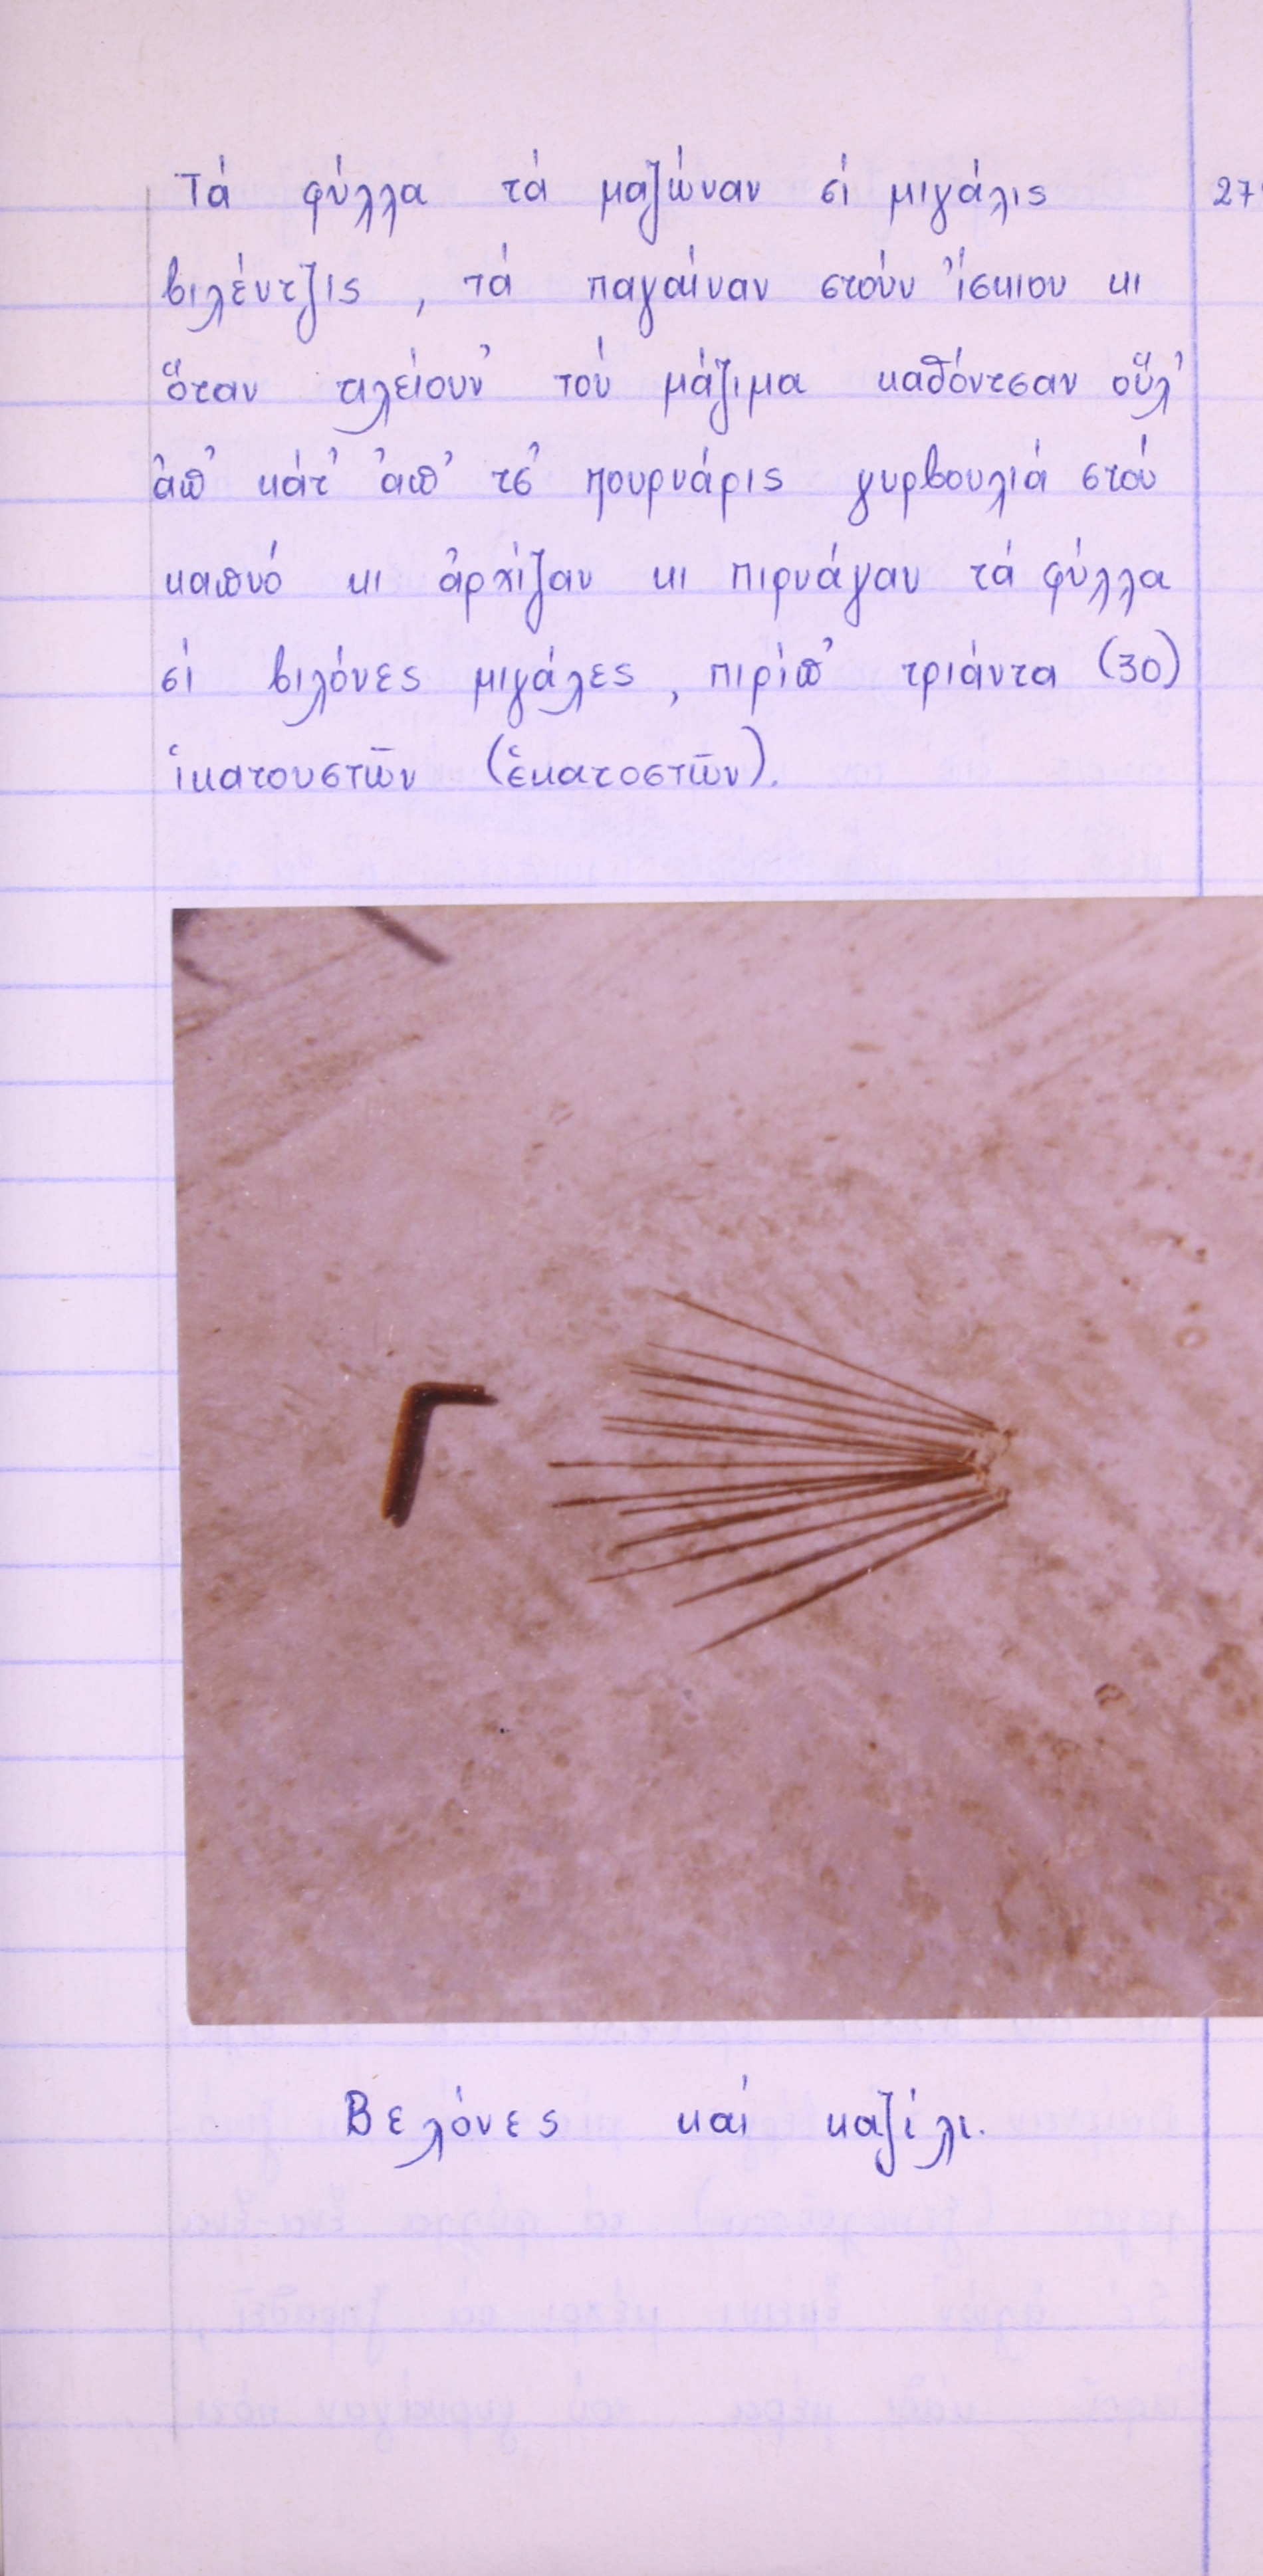 Τά φύλλα τά μαζώναν σί μιγάλις
βιλέντζις , τά παγαίναν στούν ἴσκιου κι
ὅταν τιλείουν᾿ τού μάζιμα καθόντσαν οὕλ᾿
ἀπ᾿ κάτ᾿ ἀπ᾿ τσ᾿ πουρνάρις γυρβουλιά στού
καπνό κι ἀρχίζαν κι πιρνάγαν τά φύλλα
σί βιλόνες μιγάλες , πιρίπ᾿ τριάντα (30)
ἱκατουστῶν (ἑκατοστῶν).
Βελόνες καί καζίλι.